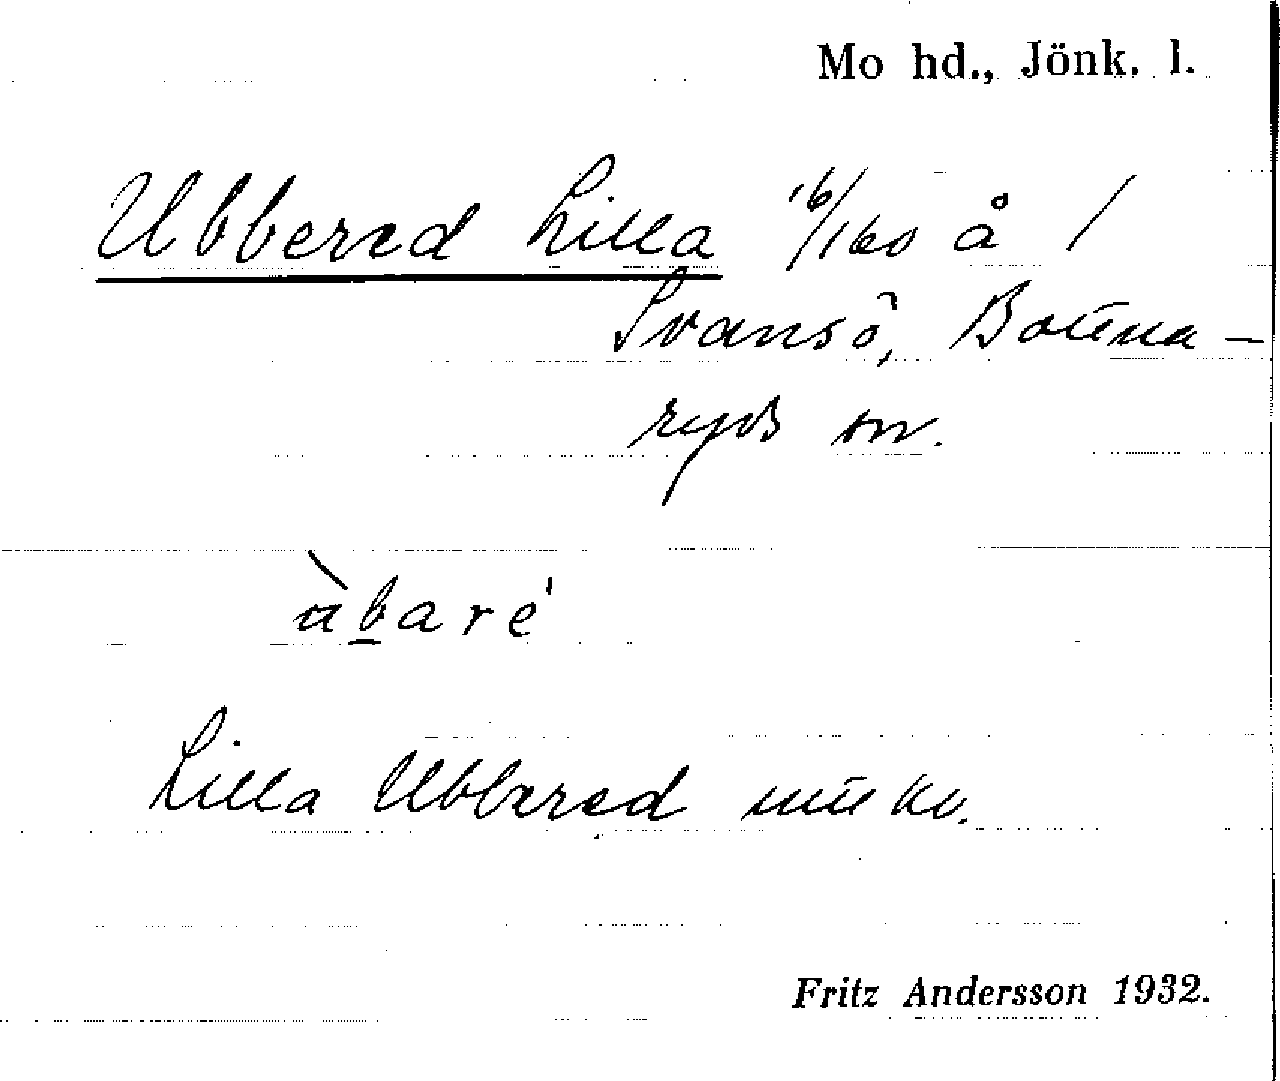 Mo hd., Jönk. l.
Ubbered Lilla 16/160 å /
Svansö, Bottna-
ryds sn.
àbaré
Lilla Ubbered
Fritz Andersson 1932.